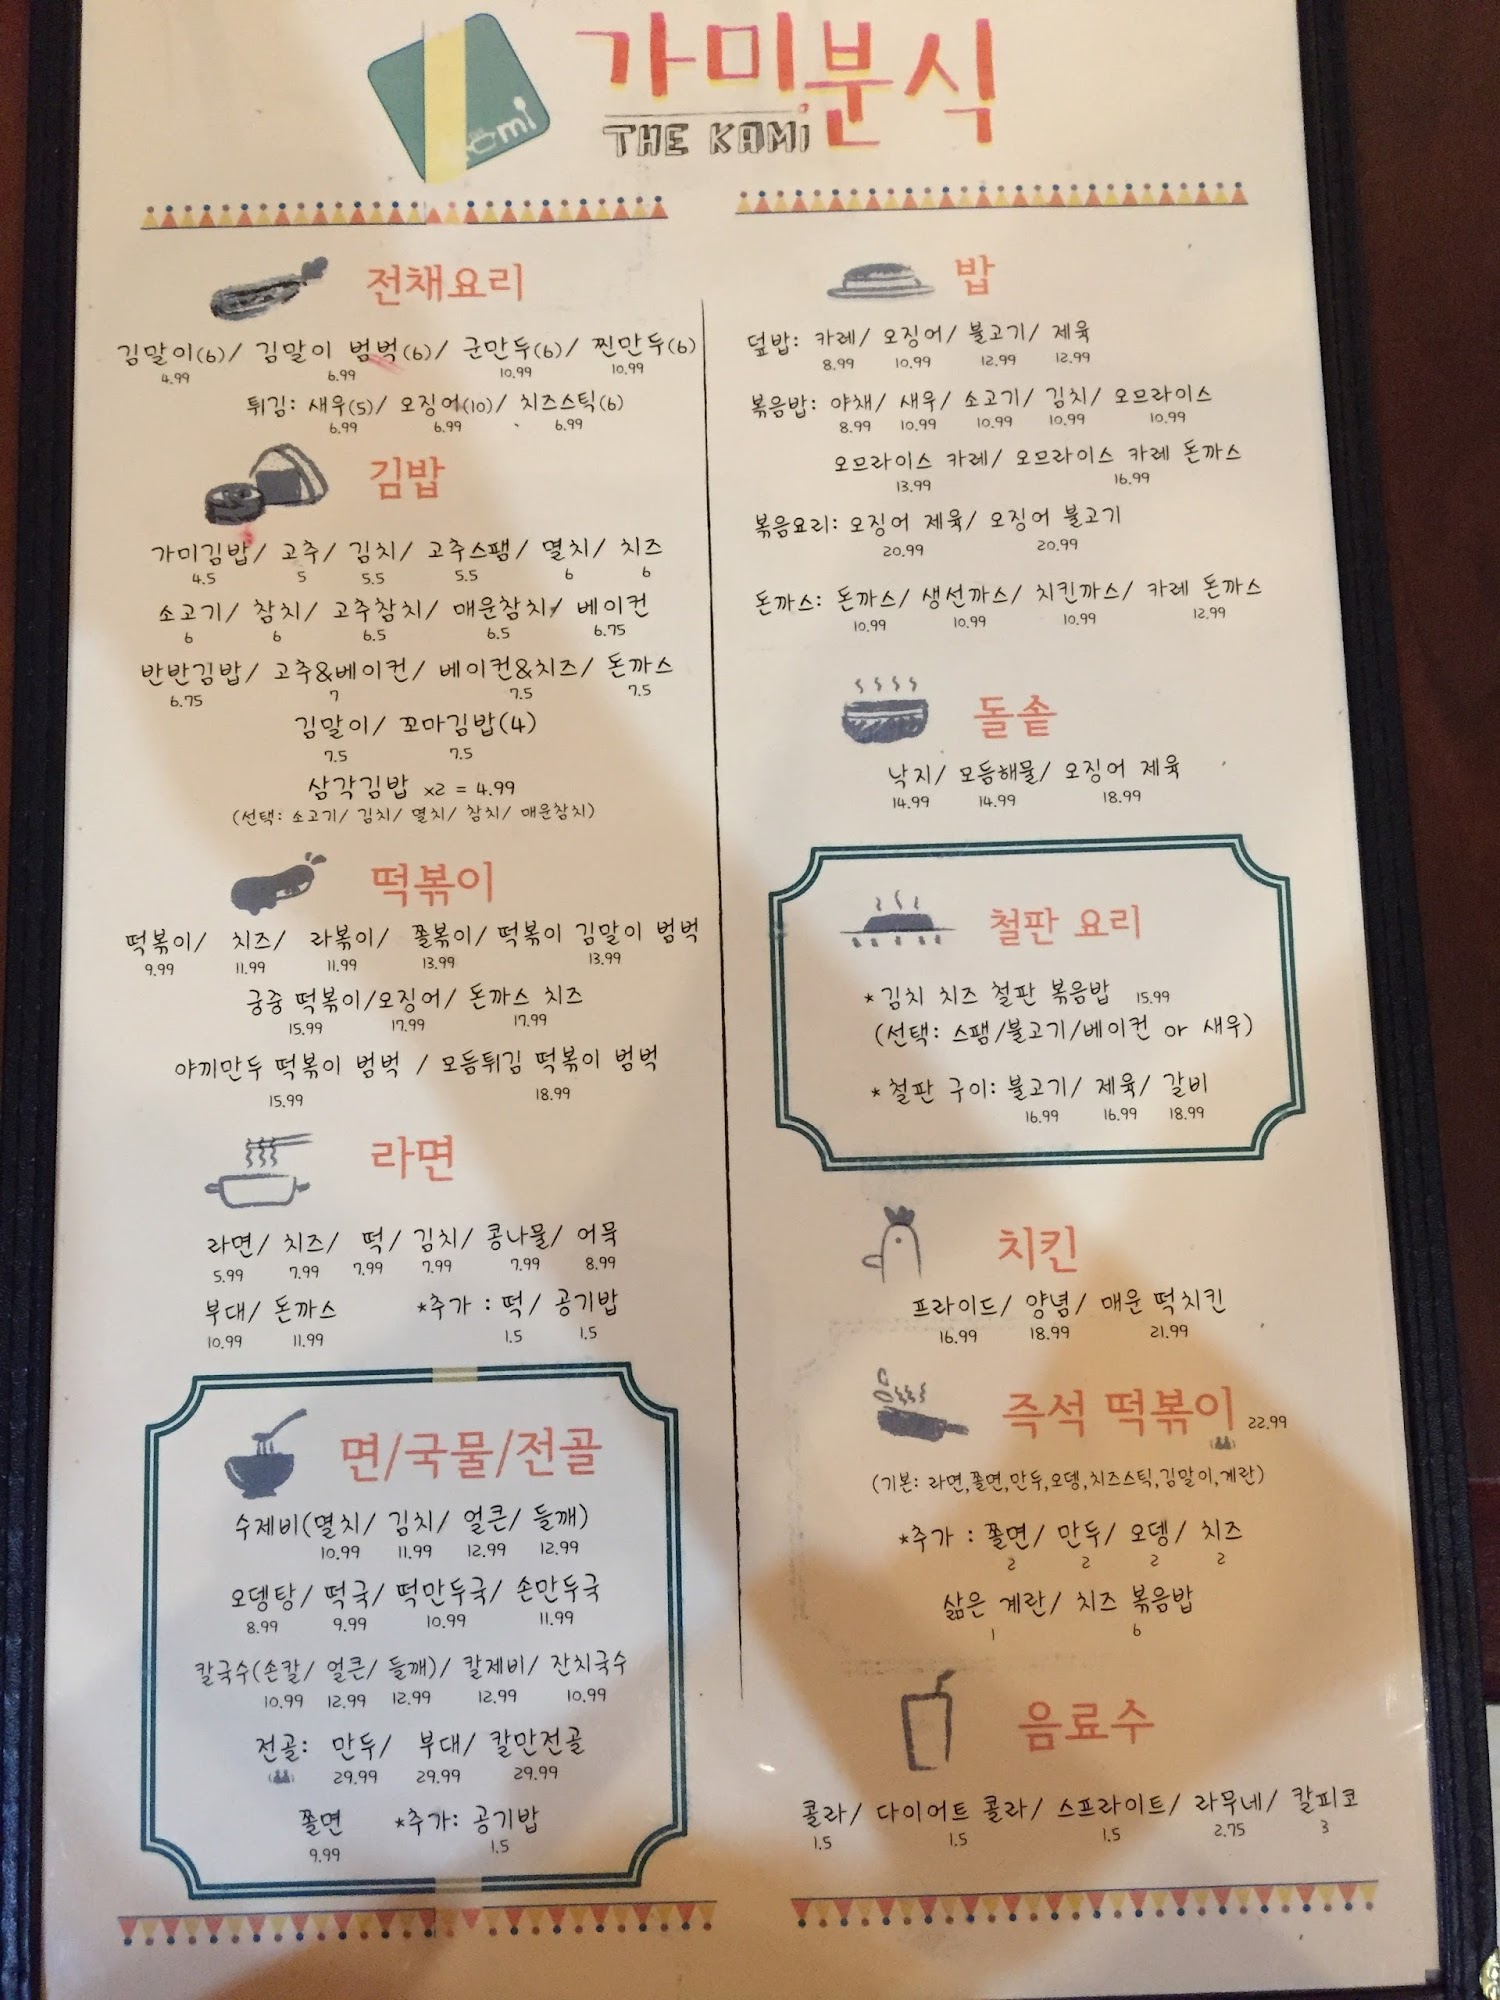 가미분식
THE KAMI
mi
전채요리
김말이(6)/ 김말이 범벅(6)/ 군만두(6)/ 찐만두(6)
4.99 6.99 10.99 10.99
튀김: 새우(5)/ 오징어(10)/ 치즈스틱(6)
6.99 6.99 6.99
김밥
가미김밥/ 고추/ 김치/ 고추스팸/ 멸치/ 치즈
4.5 5 5.5 5.5 6 6
소고기/ 참치/ 고추참치/ 매운참치/ 베이컨
6 6 6.5 6.5 6.75
반반김밥/ 고추&베이컨/ 베이컨&치즈/ 돈까스
6.75 7 7.5 7.5
김말이/ 꼬마김밥(4)
7.5 7.5
삼각김밥 x2 = 4.99
(선택: 소고기/ 김치/ 멸치/ 참치/ 매운참치)
떡볶이
떡볶이/ 치즈/ 라볶이/ 쫄볶이/ 떡볶이 김말이 범벅
9.99 11.99 11.99 13.99 13.99
궁중 떡볶이/오징어/ 돈까스 치즈
15.99 17.99 17.99
야끼만두 떡볶이 범벅 / 모듬튀김 떡볶이 범벅
15.99 18.99
라면
라면/ 치즈/ 떡/ 김치/ 콩나물/ 어묵
5.99 7.99 7.99 7.99 7.99 8.99
부대/ 돈까스 *추가 : 떡/ 공기밥
10.99 11.99 1.5 1.5
면/국물/전골
수제비(멸치/ 김치/ 얼큰/ 들깨)
10.99 11.99 12.99 12.99
오뎅탕/ 떡국/ 떡만두국/ 손만두국
8.99 9.99 10.99 11.99
칼국수(손칼/ 얼큰/ 들깨)/ 칼제비/ 잔치국수
10.99 12.99 12.99 12.99 10.99
전골: 만두/ 부대/ 칼만전골
29.99 29.99 29.99
쫄면 *추가: 공기밥
9.99 1.5
밥
덮밥: 카레/ 오징어/ 불고기/ 제육
8.99 10.99 12.99 12.99
볶음밥: 야채/ 새우/ 소고기/ 김치/ 오므라이스
8.99 10.99 10.99 10.99 10.99
오므라이스 카레/ 오므라이스 카레 돈까스
13.99 16.99
볶음요리: 오징어 제육/ 오징어 불고기
20.99 20.99
돈까스: 돈까스/ 생선까스/ 치킨까스/ 카레 돈까스
10.99 10.99 10.99 12.99
돌솥
낙지/ 모듬해물/ 오징어 제육
14.99 14.99 18.99
철판 요리
*김치 치즈 철판 볶음밥 15.99
(선택: 스팸/불고기/베이컨 or 새우)
*철판 구이: 불고기/ 제육/ 갈비
16.99 16.99 18.99
치킨
프라이드/ 양념/ 매운 떡치킨
16.99 18.99 21.99
즉석 떡볶이 22.99
(기본: 라면,쫄면,만두,오뎅,치즈스틱,김말이,계란)
*추가 : 쫄면/ 만두/ 오뎅/ 치즈
2 2 2 2
삶은 계란/ 치즈 볶음밥
1 6
음료수
콜라/ 다이어트 콜라/ 스프라이트/ 라무네/ 칼피코
1.5 1.5 1.5 2.75 3